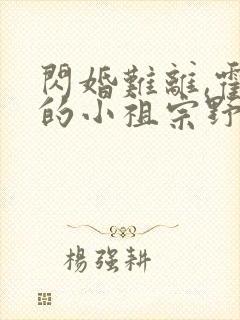 閃婚難離,霍
的小祖宗野
楊强耕